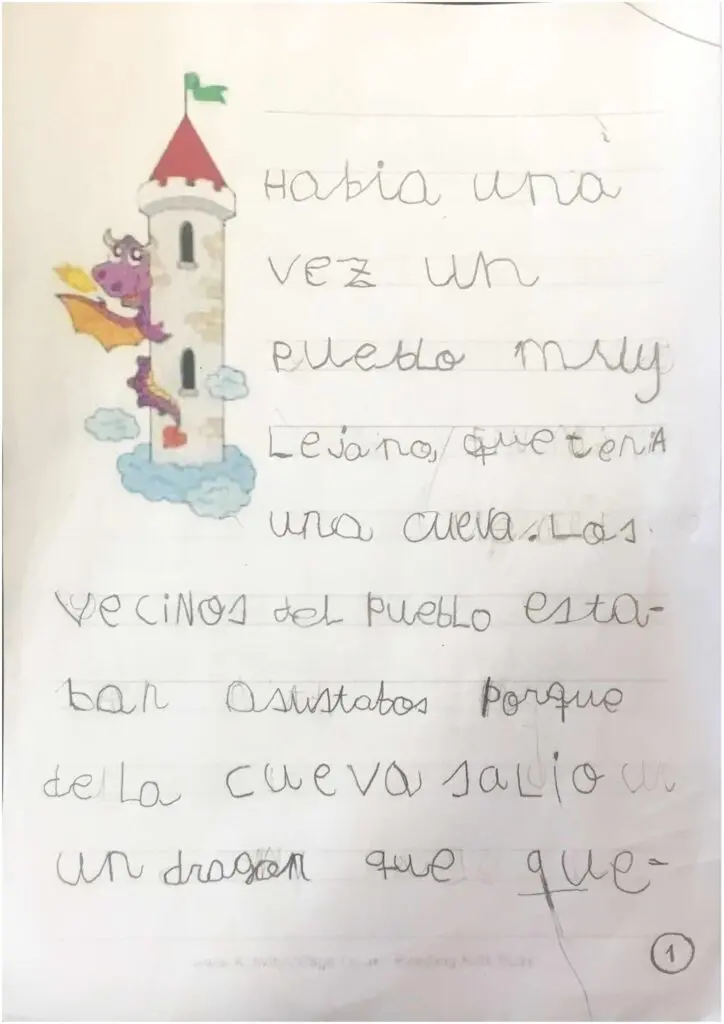 Habia una
vez un
pueblo muy
Lejano, que teniA
una cueva. Los
veciNos del PuebLo esta-
ban asustabos porque
de La cueva saLio un
un dragon que que-
1